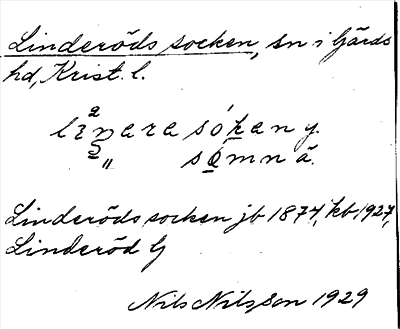 Linderöds socken, sn i Gärds
hd, Krist. l.
sókany.
" sómnä.
Linderöds socken jb 1874, kb 1927,
Linderöd G
Nils Nilsson 1929